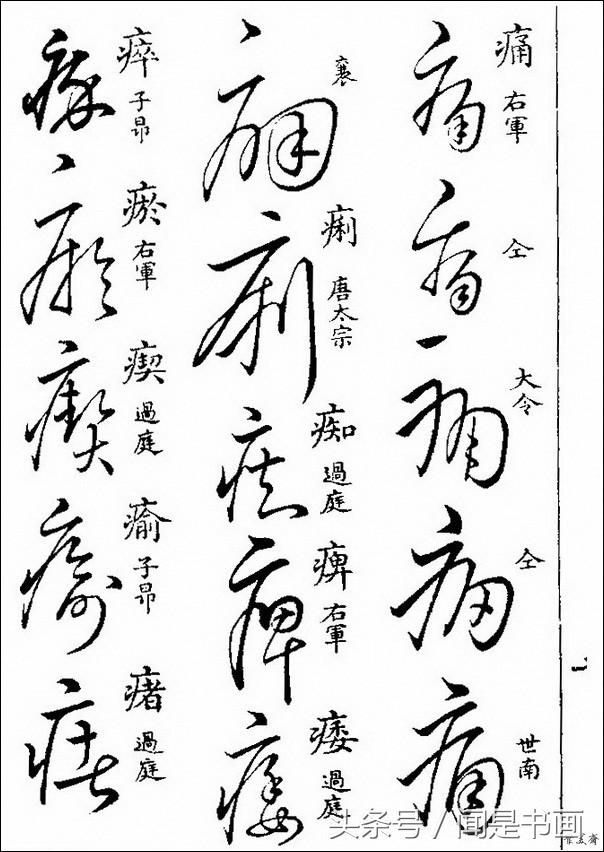 痛 右軍
仝
大令
仝
世南
襄
痢 唐太宗
痴 過庭
痺 右軍
痿 過庭
瘁 子昂
瘀 右軍
瘈 過庭
瘉 子昂
瘏 過庭
头条号 / 闻是书画